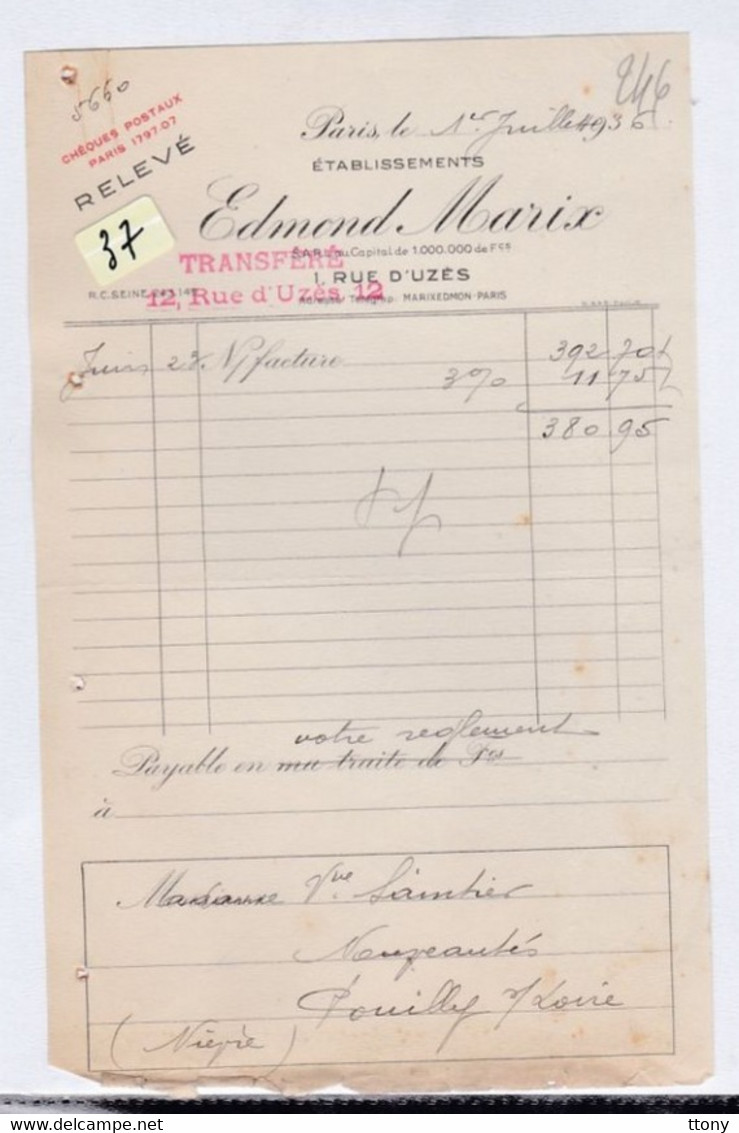 5660
246
CHÈQUES POSTAUX
PARIS 1797.07
RELEVÉ
37
Paris, le 1er Juillet 1936
ÉTABLISSEMENTS
Edmond Marix
S.A.R.L. au Capital de 1.000.000 de Fcs
TRANSFÉRÉ
1, RUE D'UZÈS
12, Rue d'Uzès 12
R.C. SEINE
Adresse Télégrap. MARIXEDMON-PARIS
Juin 29 N/ facture 392 70
3% 11 75
380 95
votre reglement
Payable en ma traite de Fcs
à
Madame Vve
Nouveautés
Pouilly s/ Loire
(Nièvre)
ttony